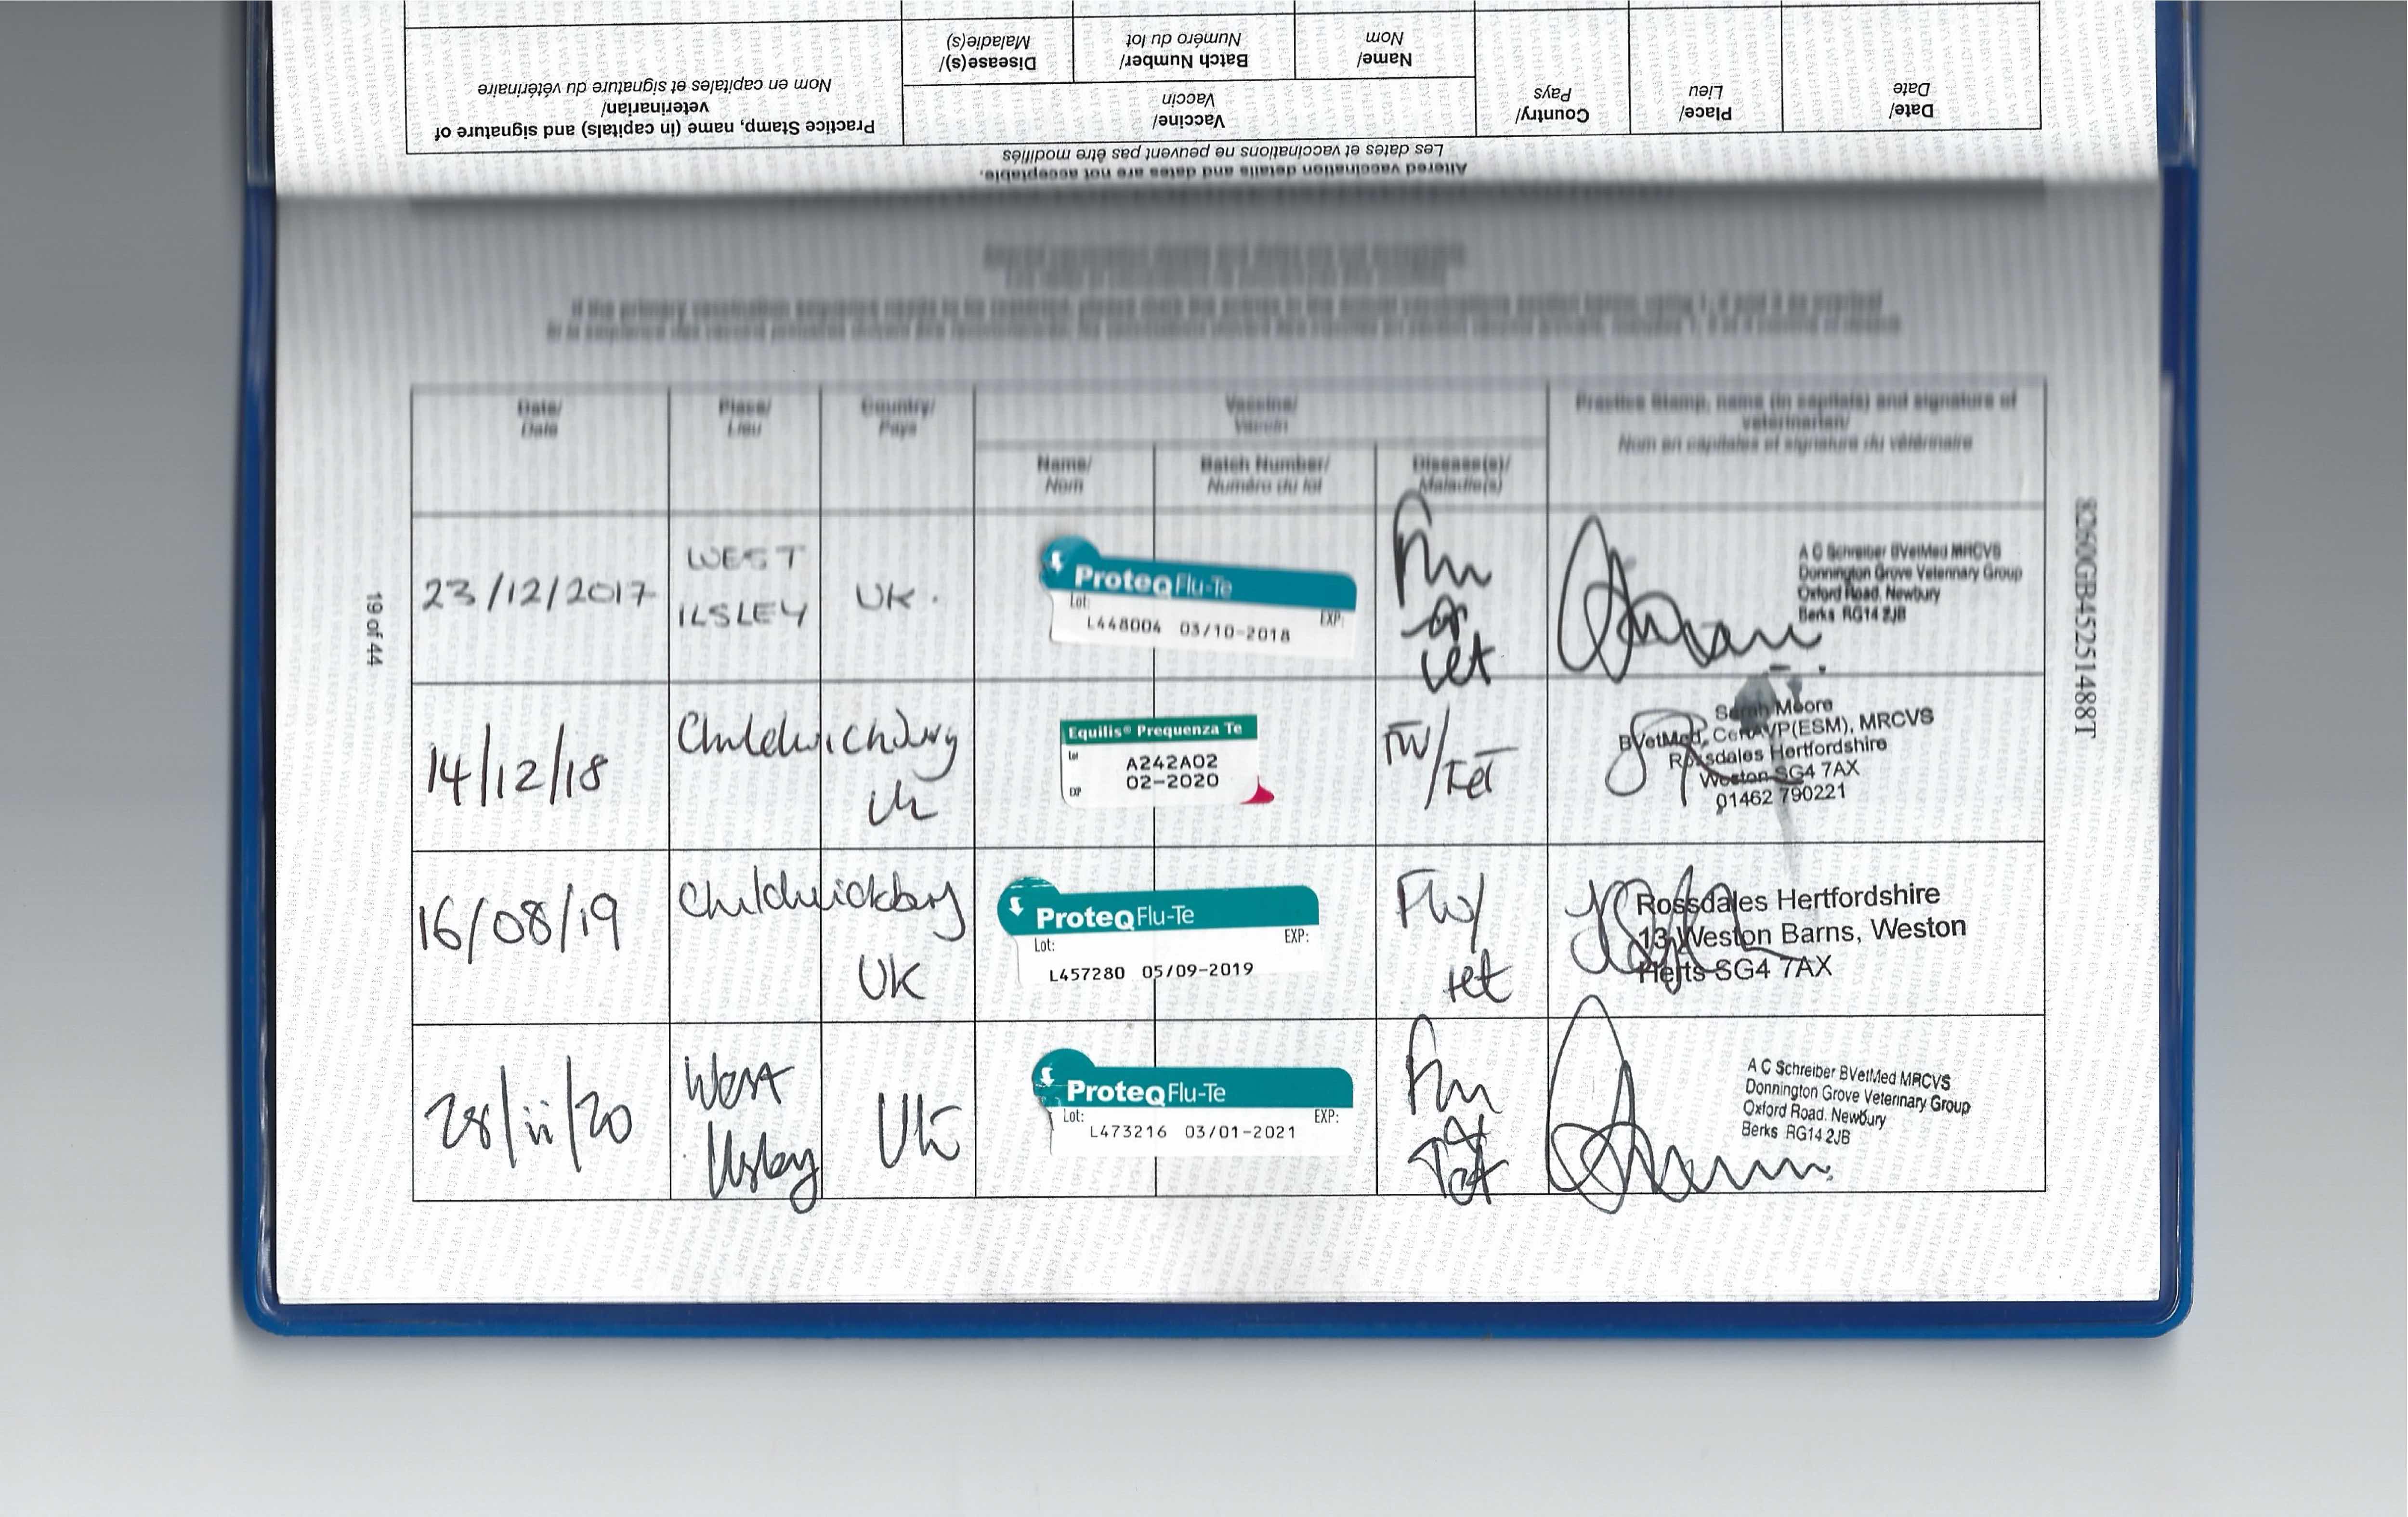 Altered vaccination details and dates are not acceptable.
Les dates et vaccinations ne peuvent pas être modifiés
Date/
Date
Place/
Lieu
Country/
Pays
Vaccine/
Vaccin
Name/
Nom
Batch Number/
Numéro du lot
Disease(s)/
Maladie(s)
Practice Stamp, name (in capitals) and signature of
veterinarian/
Nom en capitales et signature du vétérinaire
Date/
Date
Place/
Lieu
Country/
Pays
Vaccine/
Vaccin
Name/
Nom
Batch Number/
Numéro du lot
Disease(s)/
Maladie(s)
Practice Stamp, name (in capitals) and signature of
veterinarian/
Nom en capitales et signature du vétérinaire
23/12/2017
WEST
ILSLEY
UK.
ProteqFlu-Te
Lot:
EXP:
L448004 03/10-2018
Flu
&
tet
A C Schreiber BVetMed MRCVS
Donnington Grove Veterinary Group
Oxford Road, Newbury
Berks RG14 2JB
14/12/18
Childwickbury
UK
Equilis® Prequenza Te
Lot
A242A02
EXP
02-2020
Flu/
Tet
Sarah Moore
BVetMed, CertAVP(ESM), MRCVS
Rossdales Hertfordshire
Weston SG4 7AX
01462 790221
16/08/19
Childwickbury
UK
ProteqFlu-Te
Lot:
EXP:
L457280 05/09-2019
Flu/
tet
Rossdales Hertfordshire
13 Weston Barns, Weston
Herts SG4 7AX
28/ii/20
West
Ilsley
UK
ProteqFlu-Te
Lot:
EXP:
L473216 03/01-2021
Flu
&
Tet
A C Schreiber BVetMed MRCVS
Donnington Grove Veterinary Group
Oxford Road, Newbury
Berks RG14 2JB
19 of 44
8260GB45251488T